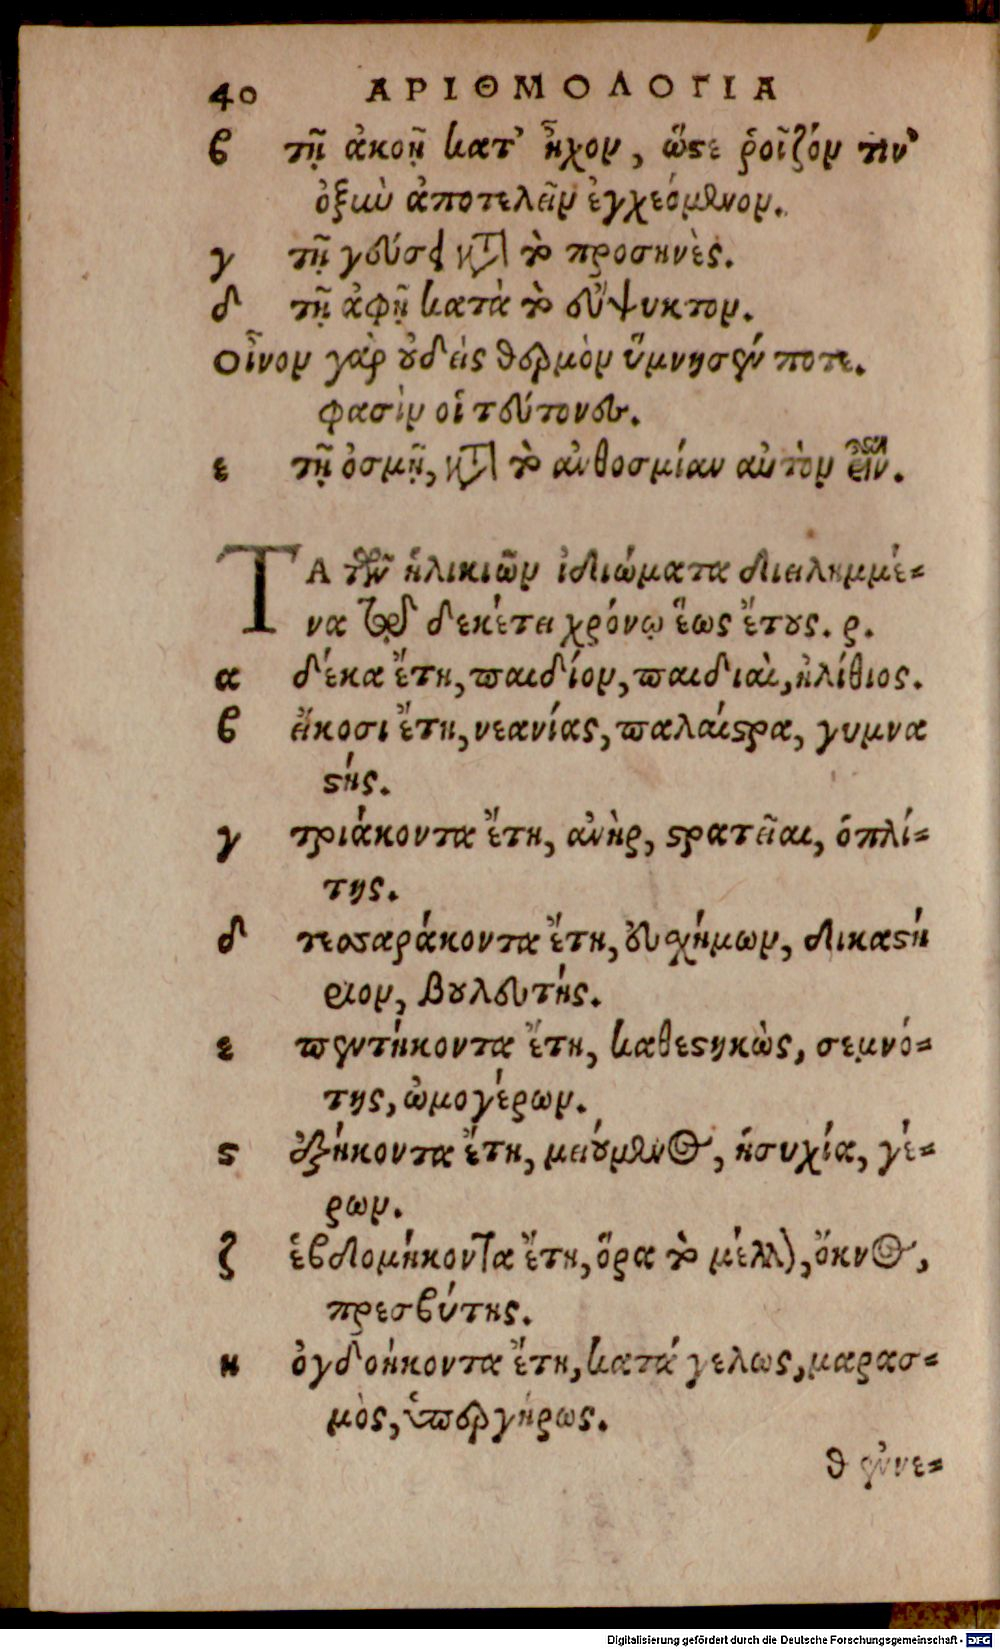 40 ΑΡΙΘΜΟΛΟΓΙΑ
β τῇ ἀκοῇ κατ' ἦχον, ὥστε ῥοῖζόν τιν'
ὀξὺν ἀποτελεῖν ἐγχεόμενον.
γ τῇ γεύσει κατὰ τὸ προσηνὲς.
δ τῇ ἀφῇ κατὰ τὸ εὔψυκτον.
Οἶνον γὰρ οὐδεὶς θερμὸν ὕμνησέν ποτε.
φασὶν οἱ τεύτονες.
ε τῇ ὀσμῇ, κατὰ τὸ ἀνθοσμίαν αὐτὸν εἶναι.
ΤΑ τῶν ἡλικιῶν ἰδιώματα διειλημμέ-
να τῷ δεκέτει χρόνῳ ἕως ἔτους. ρ.
α δέκα ἔτη, παιδίον, παιδιαὶ, ἠλίθιος.
β εἴκοσι ἔτη, νεανίας, παλαίστρα, γυμνα
στής.
γ τριάκοντα ἔτη, ἀνὴρ, στρατεῖαι, ὁπλί-
της.
δ τεσσαράκοντα ἔτη, εὐσχήμων, δικαστή
ριον, βουλευτής.
ε πεντήκοντα ἔτη, καθεστηκὼς, σεμνό-
της, ὠμογέρων.
ς ἑξήκοντα ἔτη, μειούμενος, ἡσυχία, γέ-
ρων.
ζ ἑβδομήκοντα ἔτη, ὅρα τὸ μέλλον, ὄκνος,
πρεσβύτης.
η ὀγδοήκοντα ἔτη, κατάγελως, μαρασ-
μὸς, ὑπεργήρως.
θ ἐννε-
Digitalisierung gefördert durch die Deutsche Forschungsgemeinschaft - DFG